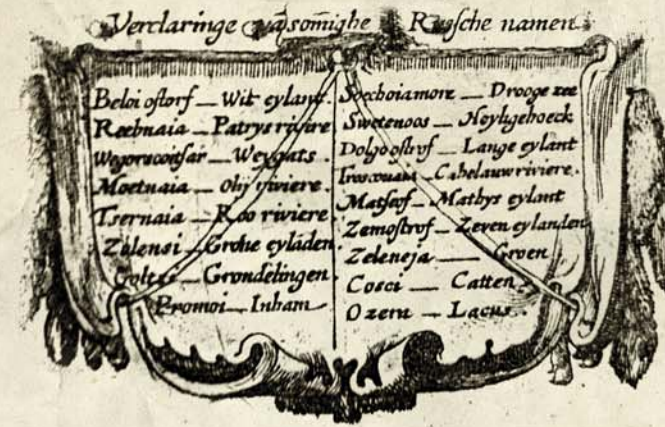 Verclaringe vā som̄ighe Russche namen
Beloi ostorf — Wit eylant.
Reebnaia — Patrys rivire
Wegorscoitsar — Weygats.
Moetnaia — Olij riviere.
Tsernaia — Roo riviere
Zulensi — Grohe eylāden
Goltzi — Grondelingen
Promoi — Inham
Soechoiamore — Drooge zee
Swetenoos — Heyligehoeck
Dolgoostrof — Lange eylant
Cabelauwriviere.
Matseof — Mathys eylant
Zemostrof — Zeven eylanden
Zeleneja — Groen
Cosci — Catten
Ozeru — Lacus.